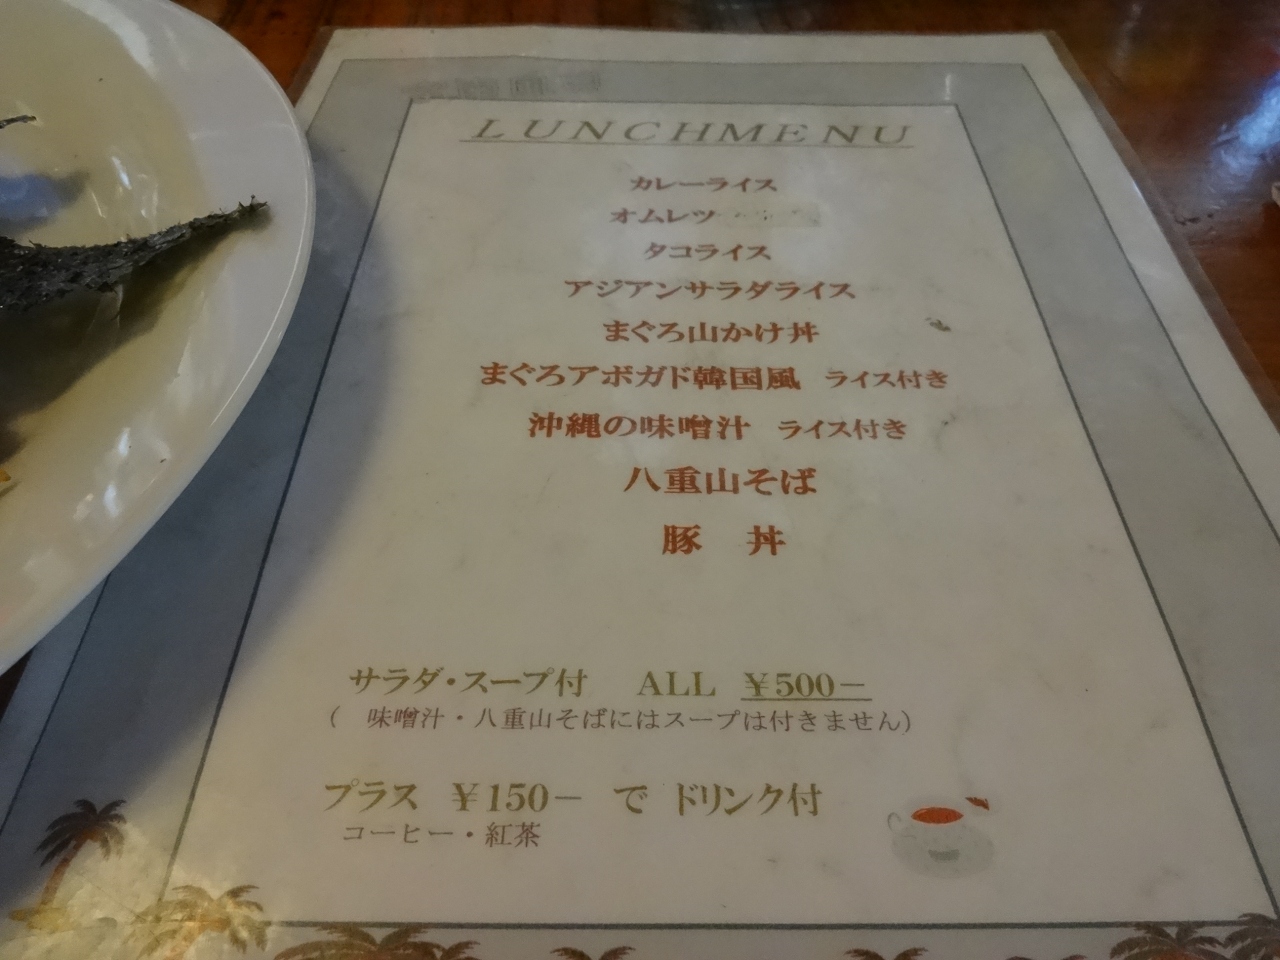 LUNCHMENU
カレーライス
オムレツ
タコライス
アジアンサラダライス
まぐろ山かけ丼
まぐろアボガド韓国風 ライス付き
沖縄の味噌汁 ライス付き
八重山そば
豚 丼
サラダ・スープ付 ALL ¥500−
( 味噌汁・八重山そばにはスープは付きません)
プラス ¥150− で ドリンク付
コーヒー・紅茶